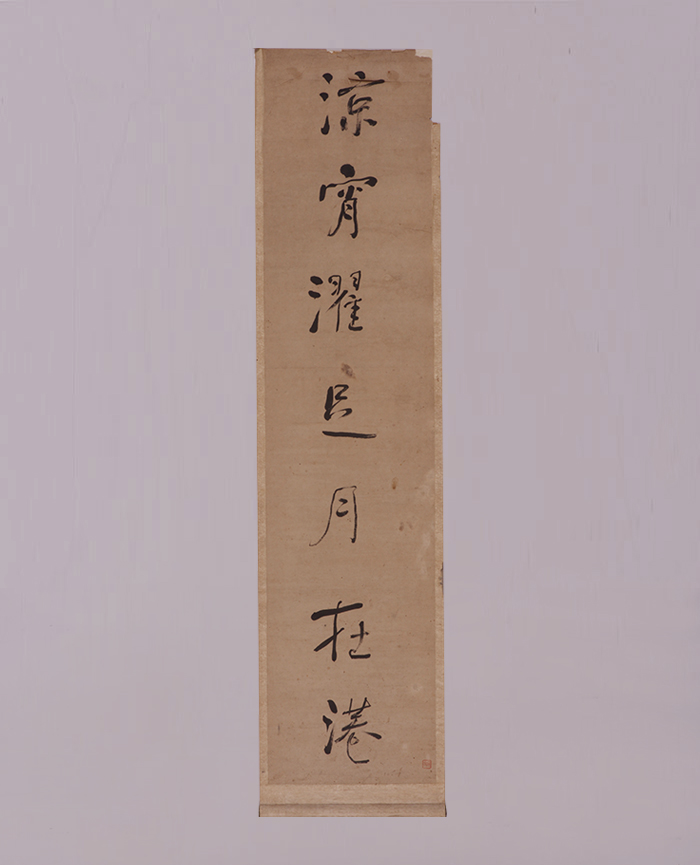 涼宵濯足月在港